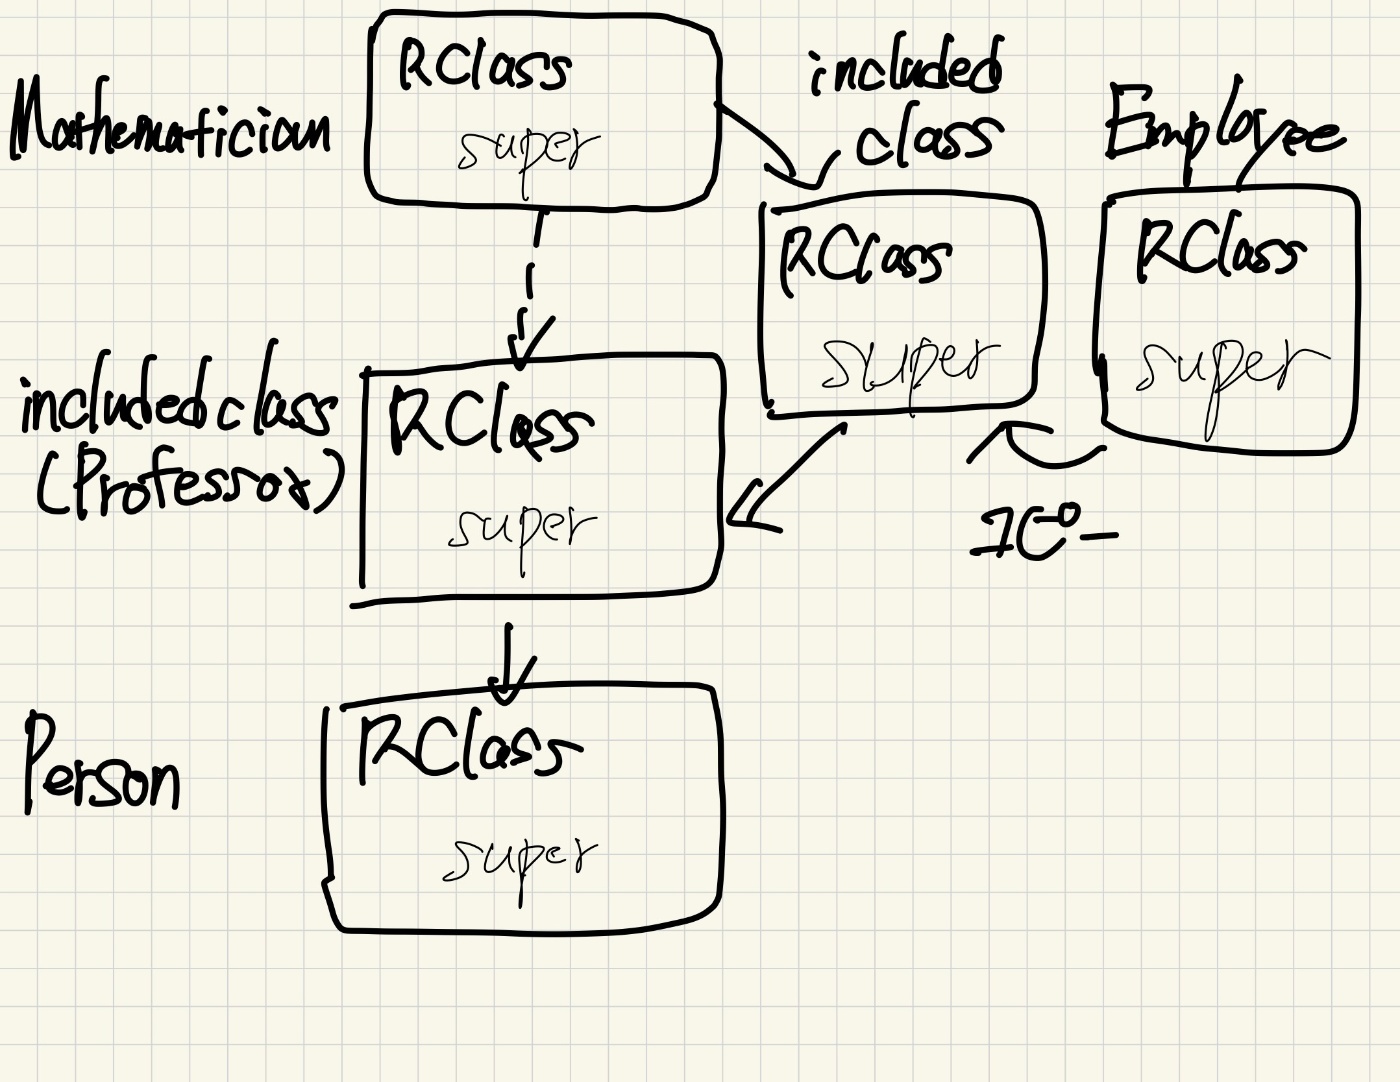 Mathematician
RClass
super
included
class
RClass
super
Employee
RClass
super
コピー
included class
(Professor)
RClass
super
Person
RClass
super